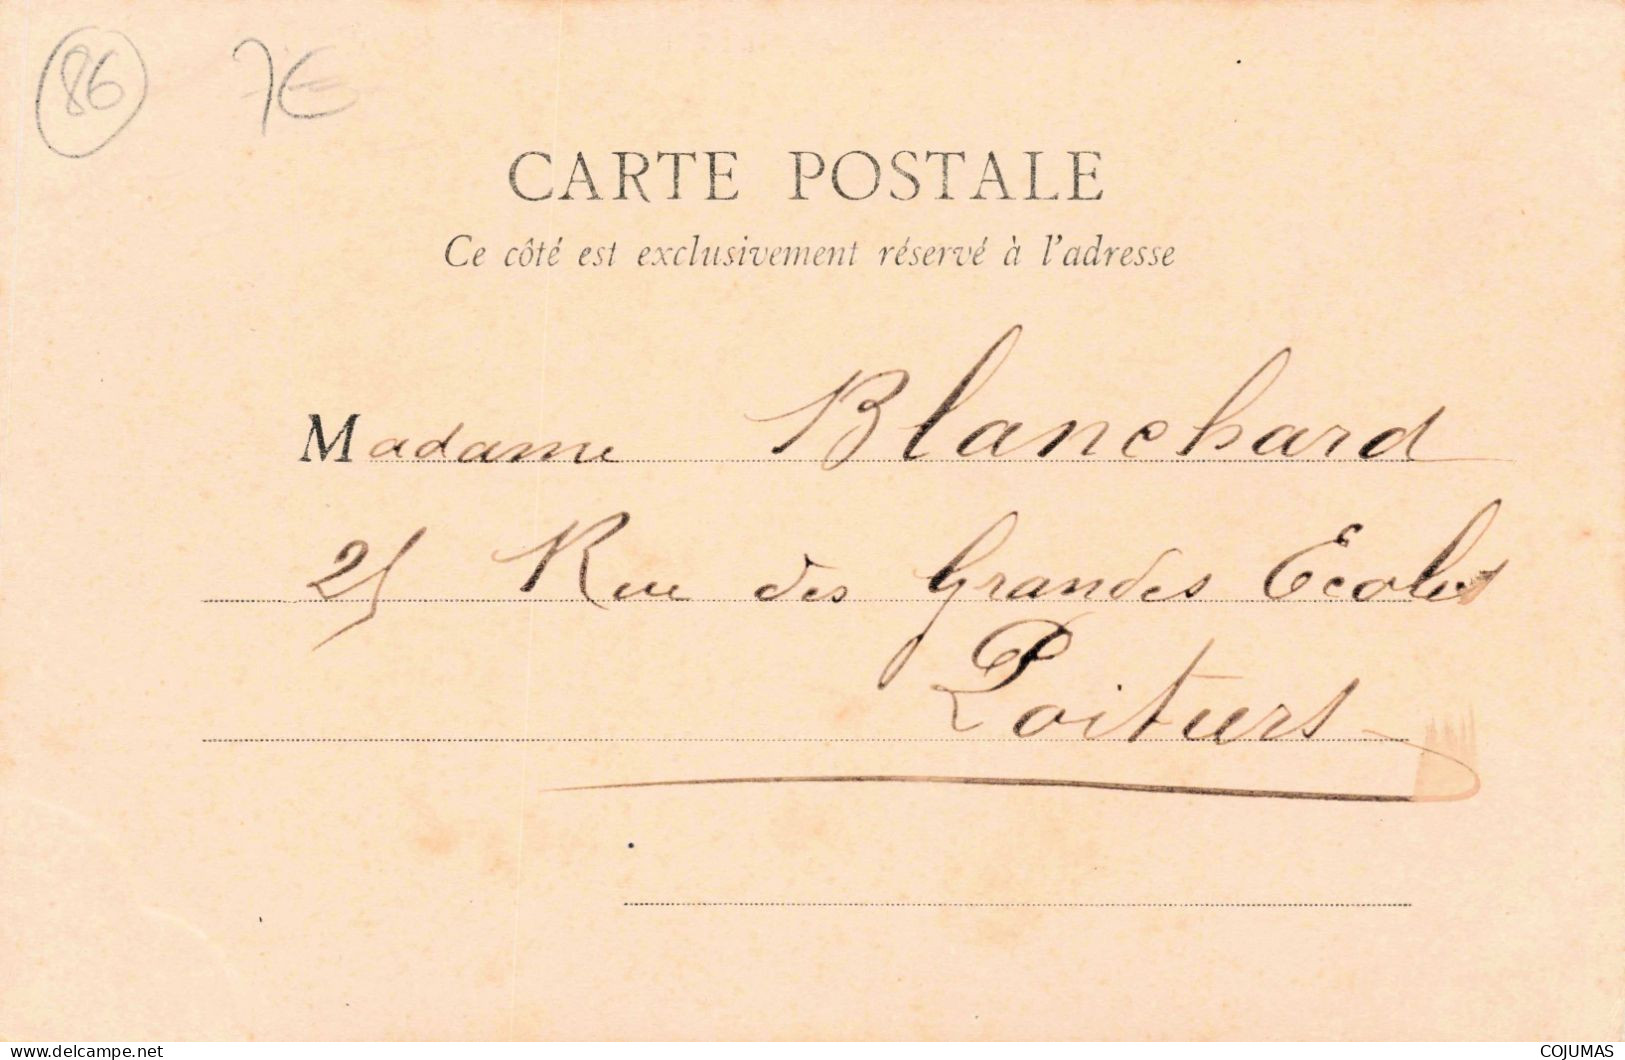 86 7€
CARTE POSTALE
Ce côté est exclusivement réservé à l'adresse
Madame Blanchard
25 Rue des Grandes Ecoles
Poitiers
delcampe.net
COJUMAS